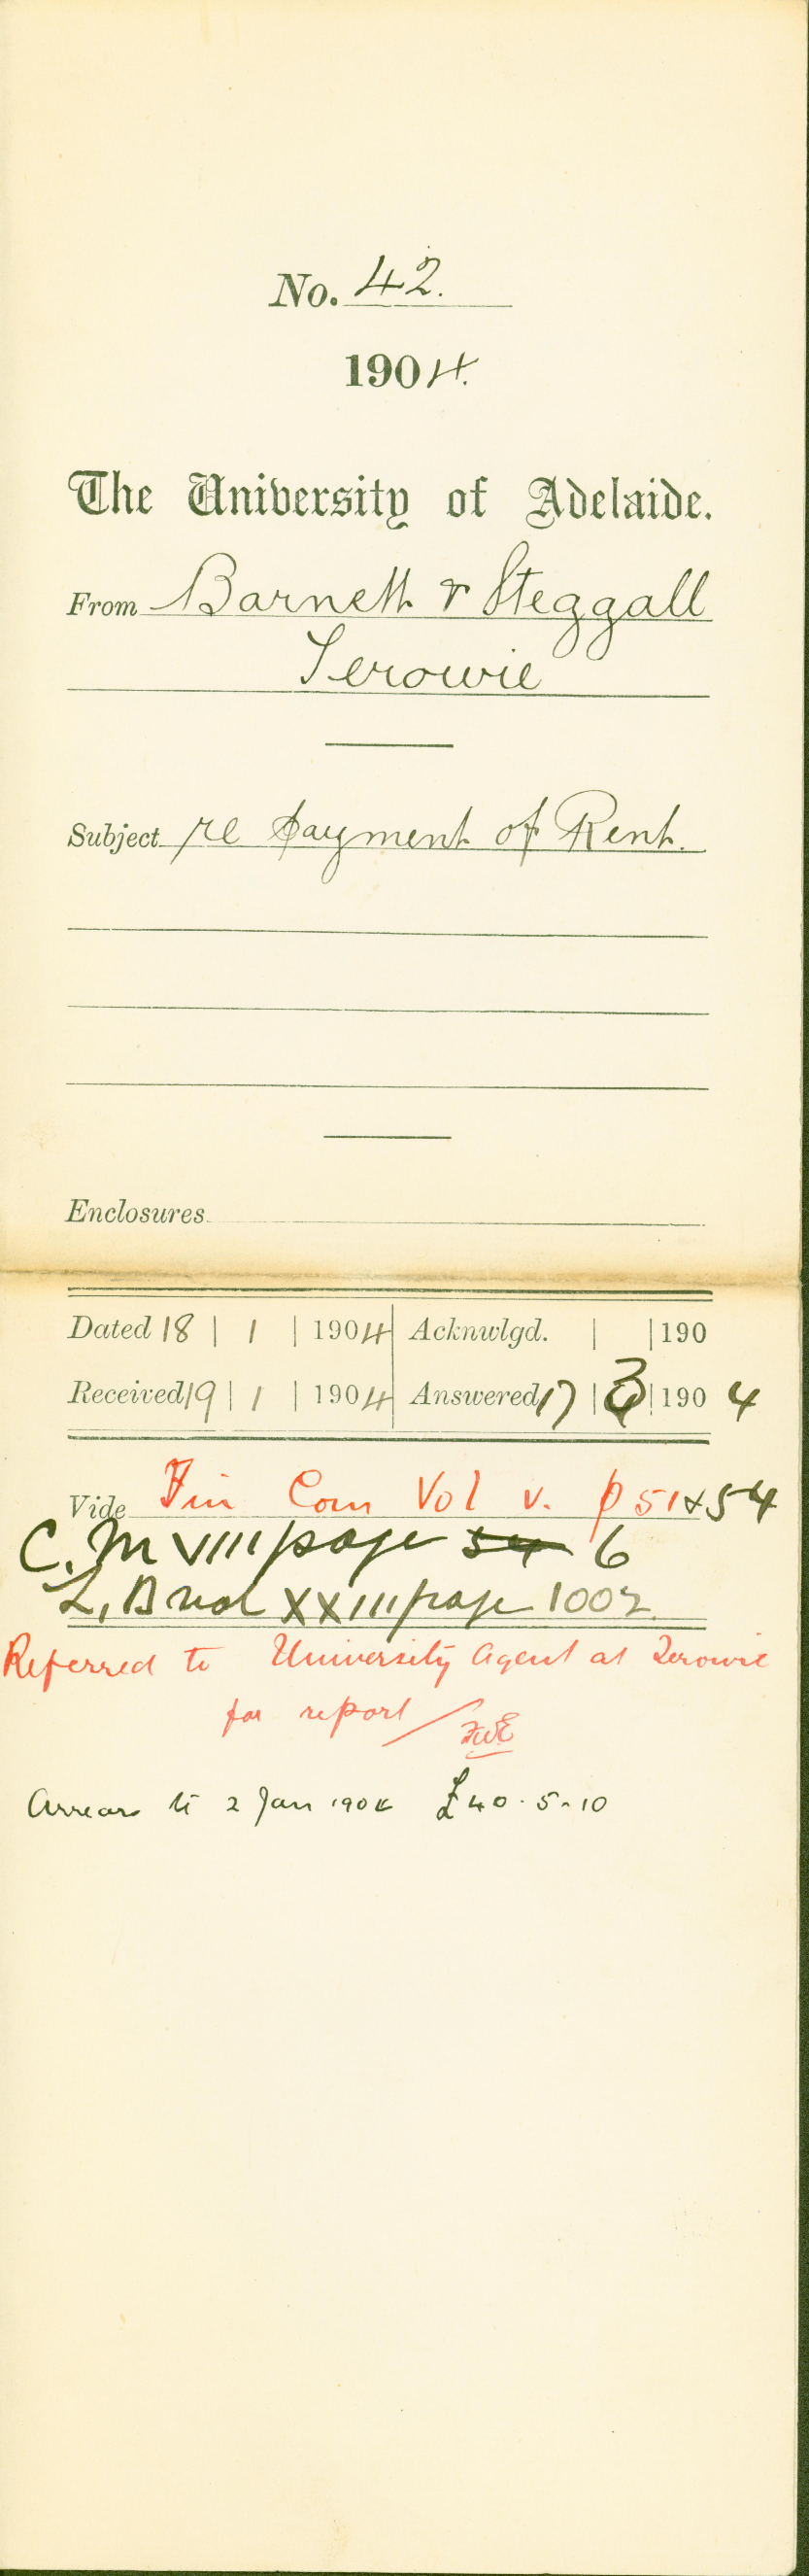 No. 42.
1904.
The University of Adelaide.
From Barnett & Steggall
Terowie
Subject re payment of Rent.
Enclosures
Dated 18 | 1 | 1904 Acknwlgd. | | 190
Received 19 | 1 | 1904 Answered 17 | 3 | 1904
Vide Fin Com Vol v. p 51 & 54
C. M VIII page 54 6
L, B vol XXIII page 1002
Referred to University Agent at Terowie
for report / FWE
Arrears to 2 Jan 1904 £40.5.10